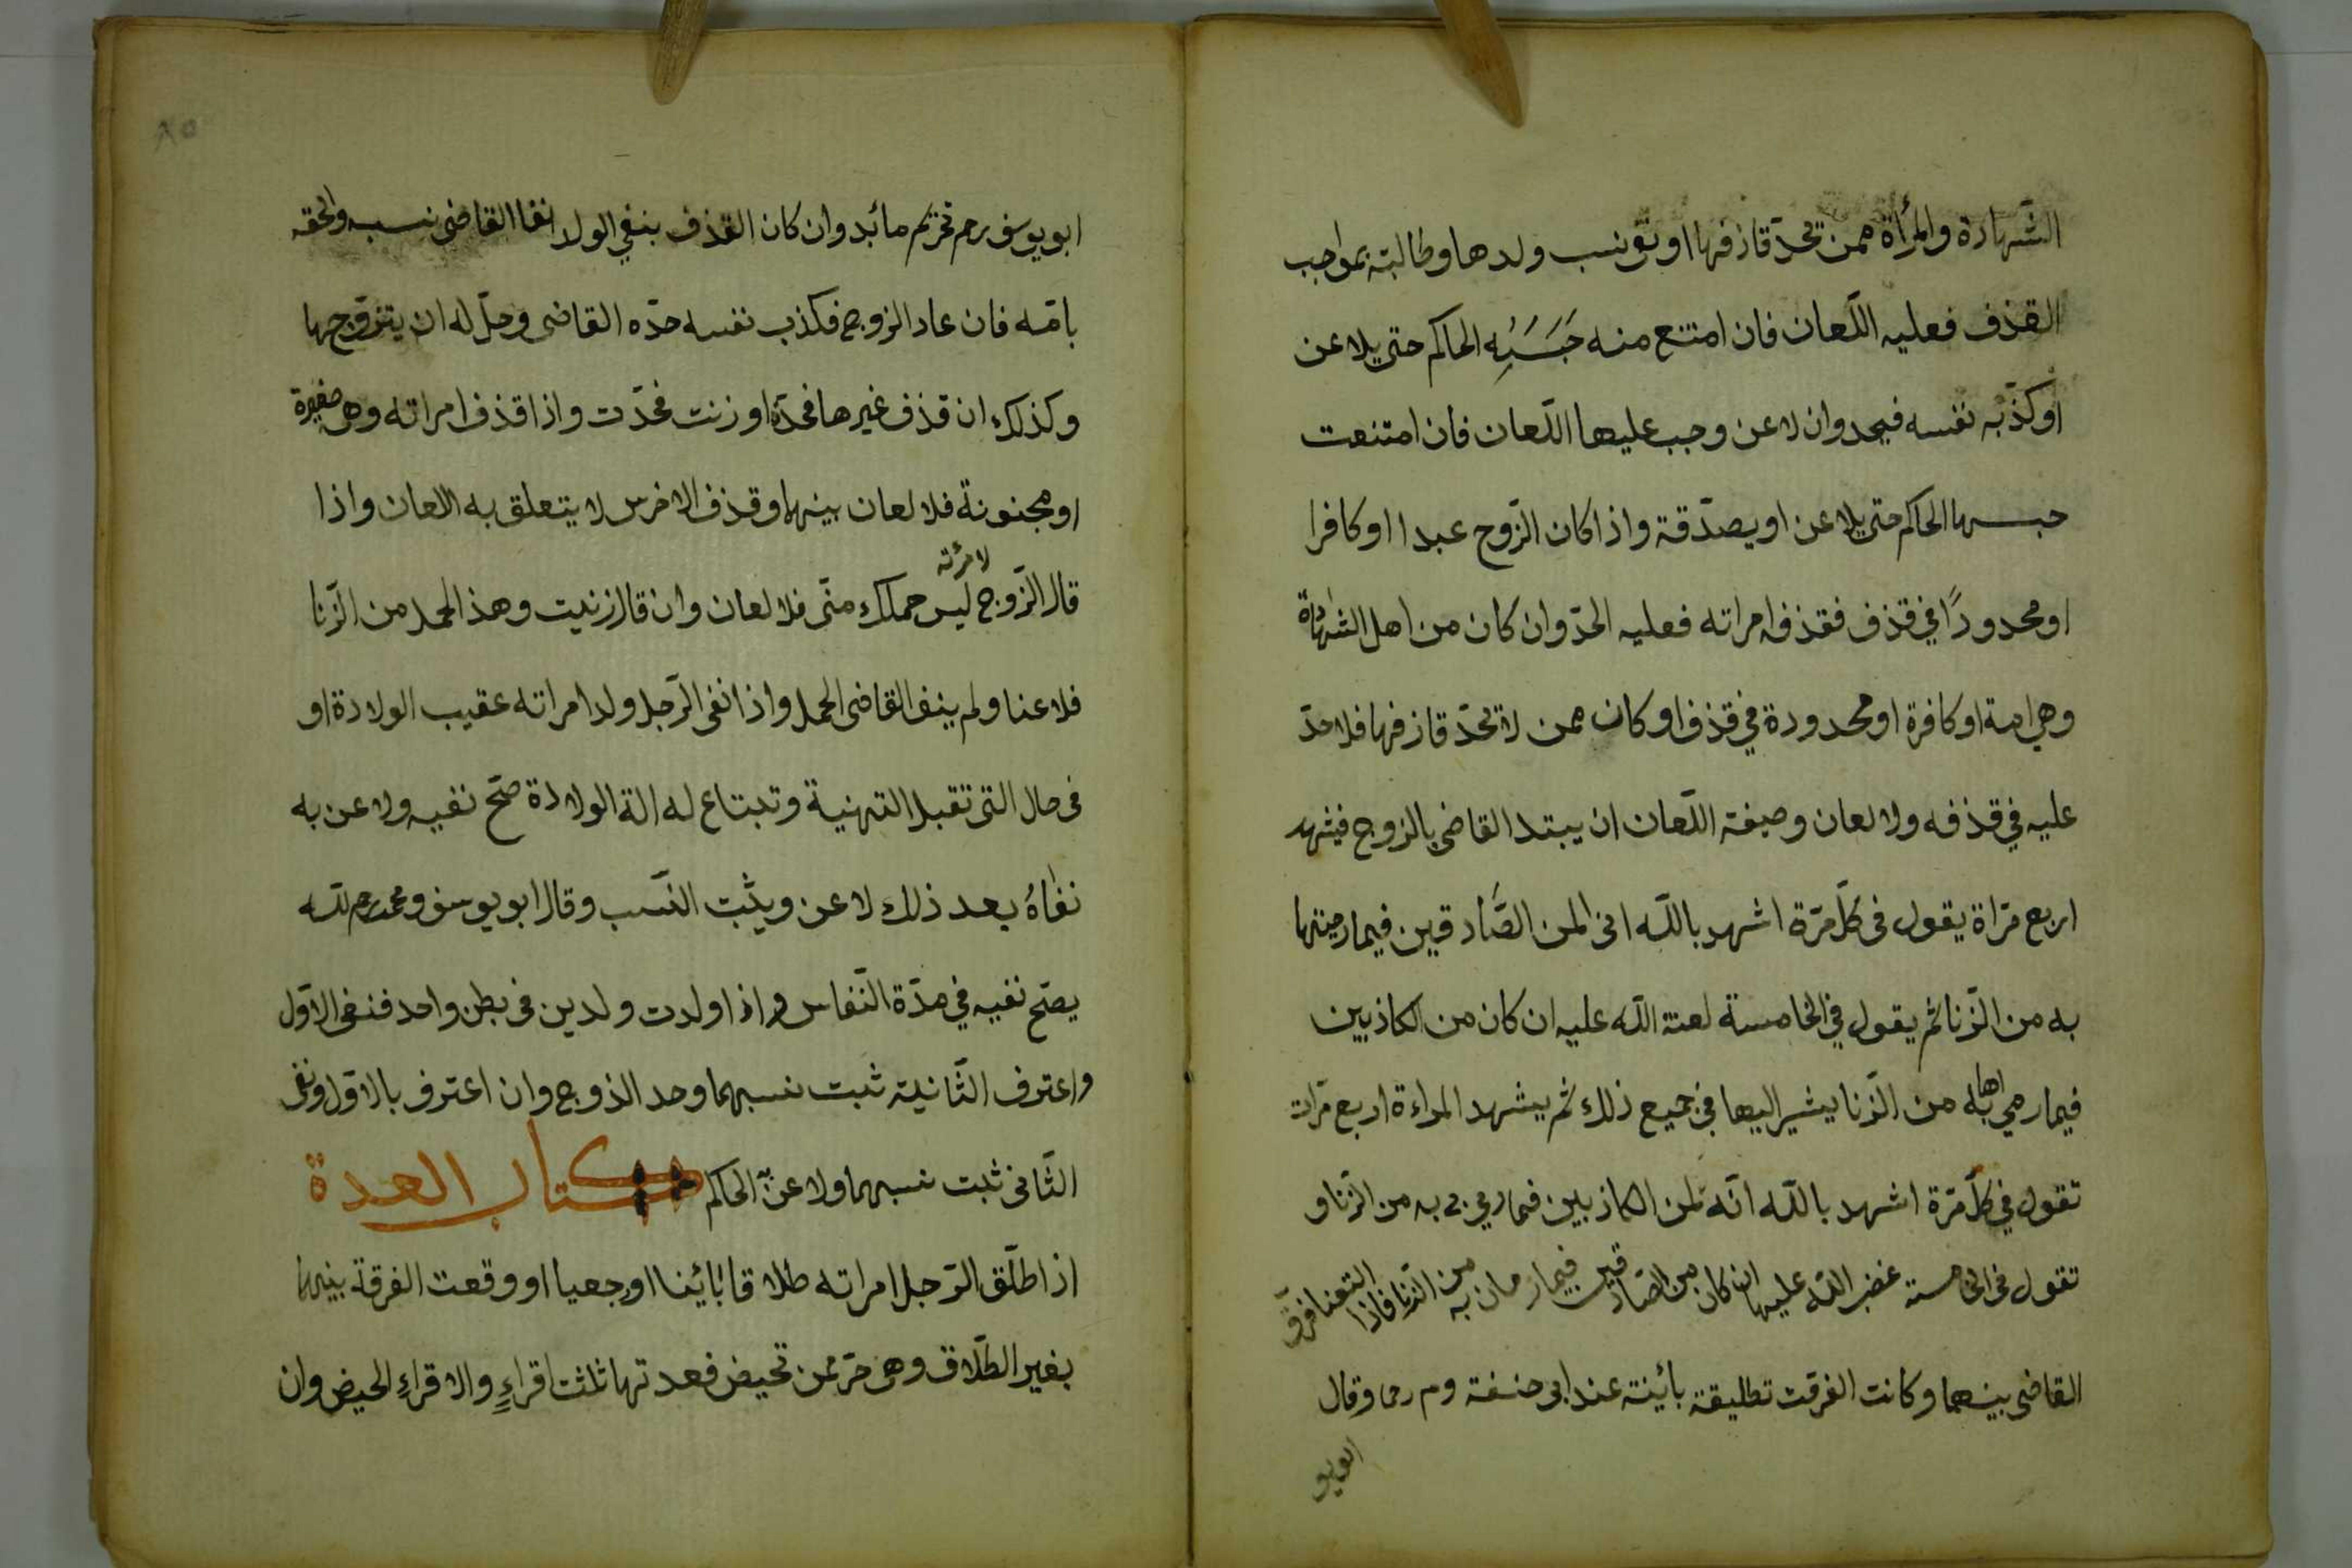 الشّهادة والمرأة ممن تحدّ قاذفها او نفى نسب ولدها وطالبته بمواجب
القذف فعليه اللّعان فان امتنع منه حَبَسَه الحاكم حتى يلاعن
او كذّبه نفسه فيحد وان لاعن وجب عليها اللّعان فان امتنعت
حبسها الحاكم حتى يلاعن او يصدّقة واذا كان الزّوج عبدا او كافرا
او محدودًا في قذف فقذف امراته فعليه الحدّ وان كان من اهل الشهادة
وهي امة او كافرة او محدودة في قذف او كان ممن لا تحدّ قاذفها فلا حدّ
عليه في قذفه ولا لعان وصيفته اللّعان ان يبتدا القاضي بالزوج فيشهد
اربع مرّاة يقول فى كلّ مرّة اشهد باللّه انى لمن الصّادقين فيما رميتها
به من الزّنا ثم يقول في الخامسة لعنة اللّه عليه ان كان من الكاذبين
فيما رمي اهابه من الزّنا يشير اليها في جميع ذلك ثم يشهد المراءة اربع مرّات
تقول في كلّ مرّة اشهد باللّه انّه لمن الكاذبين فيما رمي بى به من الزّنا و
تقول فى الخامسة غضب اللّه عليها ان كان من الصّادقين فيما رمان به من الزّنا فاذا التعنا فرّق
القاضى بينهما وكانت الفرقت تطليقة بائينة عند ابى حنيفة وم رحما وقال
ابويو
٨٥
ابويوسف رحم تحريم مائبد وان كان القذف بنفي الولد انفا القاضى نسبه والحقه
بامّه فان عاد الزوج فكذب نفسه حدّه القاضى وحلّ له ان يتزوّجها
وكذلك ان قذف غيرها فحدّه او زنت فحدّت واذا قذف امراته وهى صغيرة
او مجنونة فلا لعان بينهما وقذف الاخرس لا يتعلق به اللعان واذا
قال الزّوج لامرئته ليس حملك منّى فلا لعان وان قال زنيت وهذ الحمد من الزّنا
فلاعنا ولم ينف القاضى الحمل واذا نفى الرّجل ولد امراته عقيب الولادة او
فى حال التى تقبل التهنية وتبتاع له الة الولادة صحّ نفيه ولاعن به
نفاهُ بعد ذلك لاعن ويثبت النّسب وقال ابو يوسف ومحمد رحم للّه
يصحّ نفيه في مدّة النّفاس واذا ولدت ولدين فى بطن واحد فنفى الاوّل
واعترف الثّانيته ثبت نسبهما وحد الذوج وان اعترف بالاوّل ونفى
الثّانى ثبت نسبهما ولاعنّ الحاكم كتاب العدة
اذا طلّق الرّجل امراته طلاقا بائينا او رجعيا او وقعت الفرقة بينهما
بغير الطّلاق وهى حرّ ممن تحيض فعدتها ثلثت اقراءٍ والاقراءِ الحيض وان